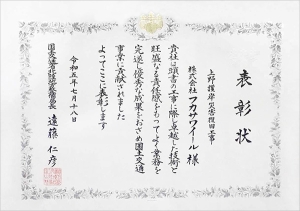 表彰状
上野護岸災害復旧工事
株式会社フカサワイール 様
貴社は頭書の工事に際し卓越した技術と
旺盛なる責任感をもってよく業務を
完遂し優秀な成果をおさめ国土交通
事業に貢献されました
よってここに表彰します
令和五年七月十八日
遠藤 仁彦